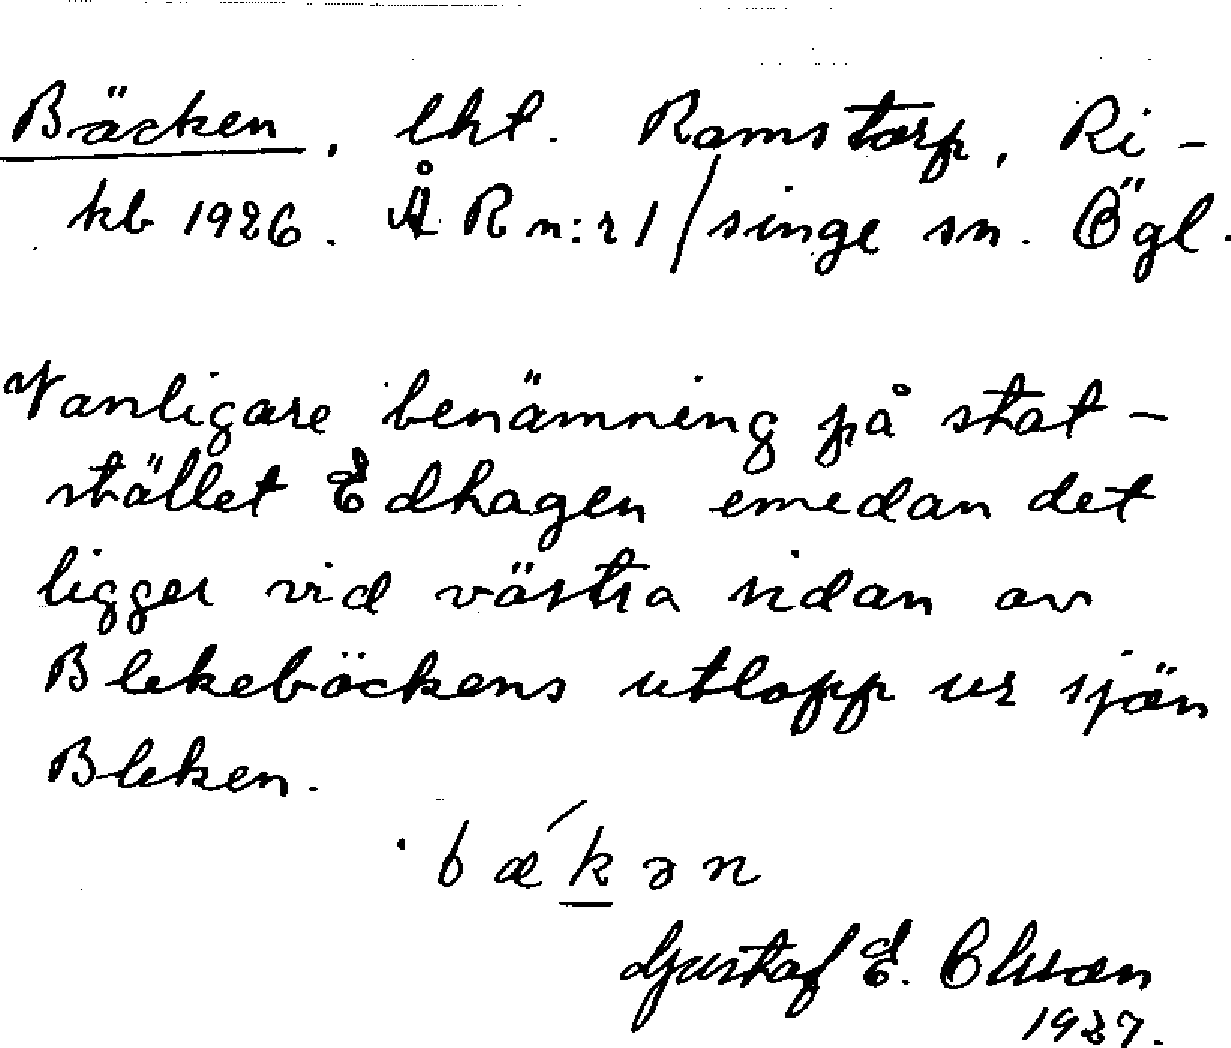 Bäcken, lht. Ramstorp, Ri-
kb 1926. Å. R n:r 1/singe sn. Ögl.
Vanligare benämning på stat-
stället Edhagen emedan det
ligger vid västra sidan av
Blekebäckens utlopp ur sjön
Bleken.
bæ´kən
Gustaf E. Olsson
1927.